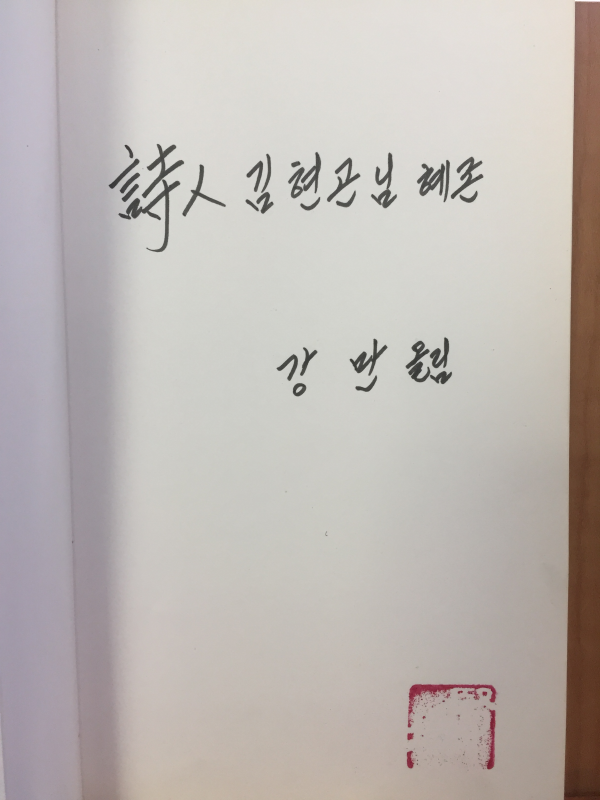 詩人 김현관님 혜존
강 만 올림